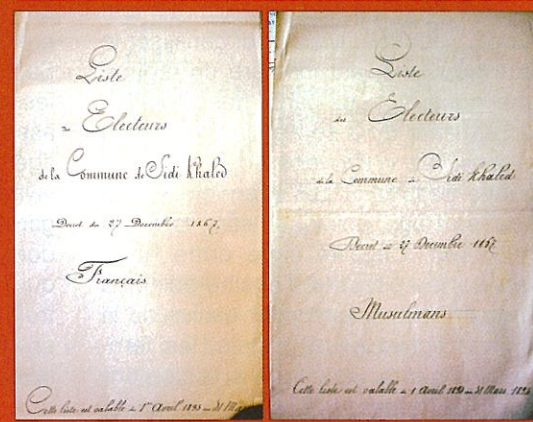 Liste
des Electeurs
de la Commune de Sidi Khaled
Décret du 27 Décembre 1867.
Français
Cette liste est valable du 1er Avril 1893 au 31
Liste
des Electeurs
de la Commune de Sidi Khaled
Décret du 27 Décembre
Musulmans
Cette liste est valable du 1 Avril 1893 au 31 Mars